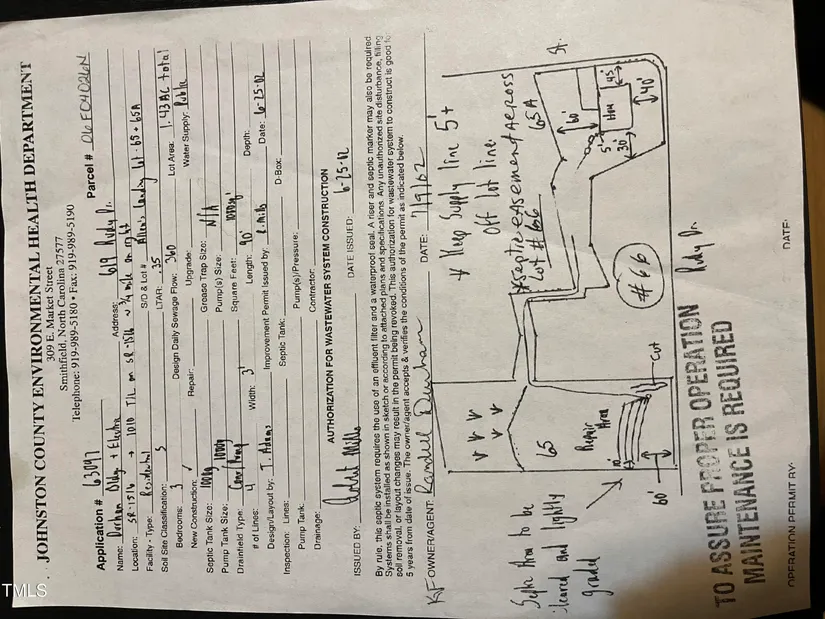 JOHNSTON COUNTY ENVIRONMENTAL HEALTH DEPARTMENT
309 E. Market Street
Smithfield, North Carolina 27577
Telephone: 919-989-5180 • Fax: 919-989-5190
Application # 63047 Parcel # 06F04026N
Name: Durham Bldg + Electric Address: 619 Rudy Dr.
Location: SR-1516 → 1010 T/L on SR-1516 ~ 3/4 mile on right
Facility - Type: Residential S/D & Lot # Allen's Landing Lot 65 + 65A
Soil Site Classification: S LTAR: .35 Lot Area: 1.43 AC total
Bedrooms: 3 Design Daily Sewage Flow: 360 Water Supply: Public
New Construction: ✓ Repair: Upgrade:
Septic Tank Size: 1000g Grease Trap Size: N/A
Pump Tank Size: 1000g Pump(s) Size:
Drainfield Type: Conv. Pump Square Feet: 1080sq'
# of Lines: 4 Width: 3' Length: 90' Depth:
Design/Layout by: T. Adams Improvement Permit Issued by: R. Mills Date: 6-25-02
Inspection: Lines: Septic Tank: D-Box:
Pump Tank: Pump(s)/Pressure:
Drainage: Contractor:
AUTHORIZATION FOR WASTEWATER SYSTEM CONSTRUCTION
ISSUED BY: Robert Mills DATE ISSUED: 6-25-02
By rule, this septic system requires the use of an effluent filter and a waterproof seal. A riser and septic marker may also be required
Systems shall be installed as shown in sketch or according to attached plans and specifications. Any unauthorized site disturbance, filling
soil removal, or layout changes may result in the permit being revoked. This authorization for wastewater system to construct is good fo
5 years from date of issue. The owner/agent accepts & verifies the conditions of the permit as indicated below.
OWNER/AGENT: Randall Durham DATE: 7/9/02
* Keep Supply line 5'+
Off Lot line
* Septic easement across
Lot #66 65A
St.
Septic Area to be
cleared and lightly
graded
65
Repair
Area
10'
60'
Cut
#66
Rudy Dr.
60'
5'
30'
Hou
45'
40'
TO ASSURE PROPER OPERATION
MAINTENANCE IS REQUIRED
OPERATION PERMIT BY: DATE:
TMLS